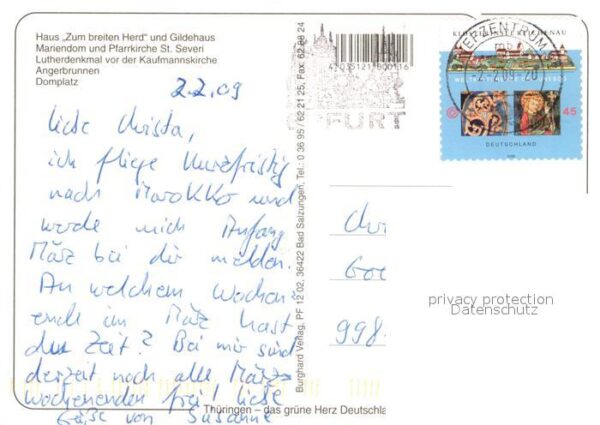 Haus „Zum breiten Herd" und Gildehaus
Mariendom und Pfarrkirche St. Severi
Lutherdenkmal vor der Kaufmannskirche
Angerbrunnen
Domplatz
2.2.09
Liebe Christa,
ich fliege kurzfristig
nach Marokko und
werde mich Anfang
März bei dir melden.
An welchem Wochen-
ende im März hast
du Zeit? Bei mir sind
derzeit noch alle März-
wochenenden frei! Liebe
Grüße von Susanne
Burghard Verlag, PF 12 02, 36422 Bad Salzungen, Tel.: 0 36 95 / 62 21 25, Fax: 62 88 24
4203512100016
ERFURT
BRIEFZENTRUM
KLOSTERINSEL REICHENAU
WELTKULTURERBE DER UNESCO
45
DEUTSCHLAND
Chr
Goe
998
privacy protection
Datenschutz
Thüringen – das grüne Herz Deutschla